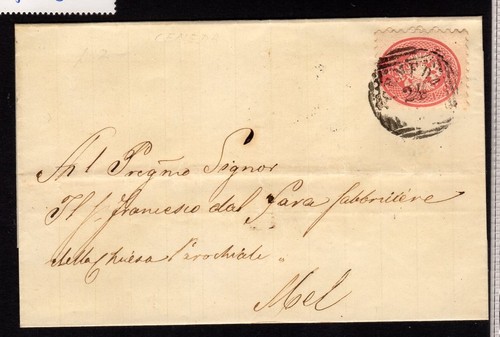 CENEDA
Al Pregmo Signor
Il S. Francesco dal Fara fabbriciere
della Chiesa Parochiale
Mel